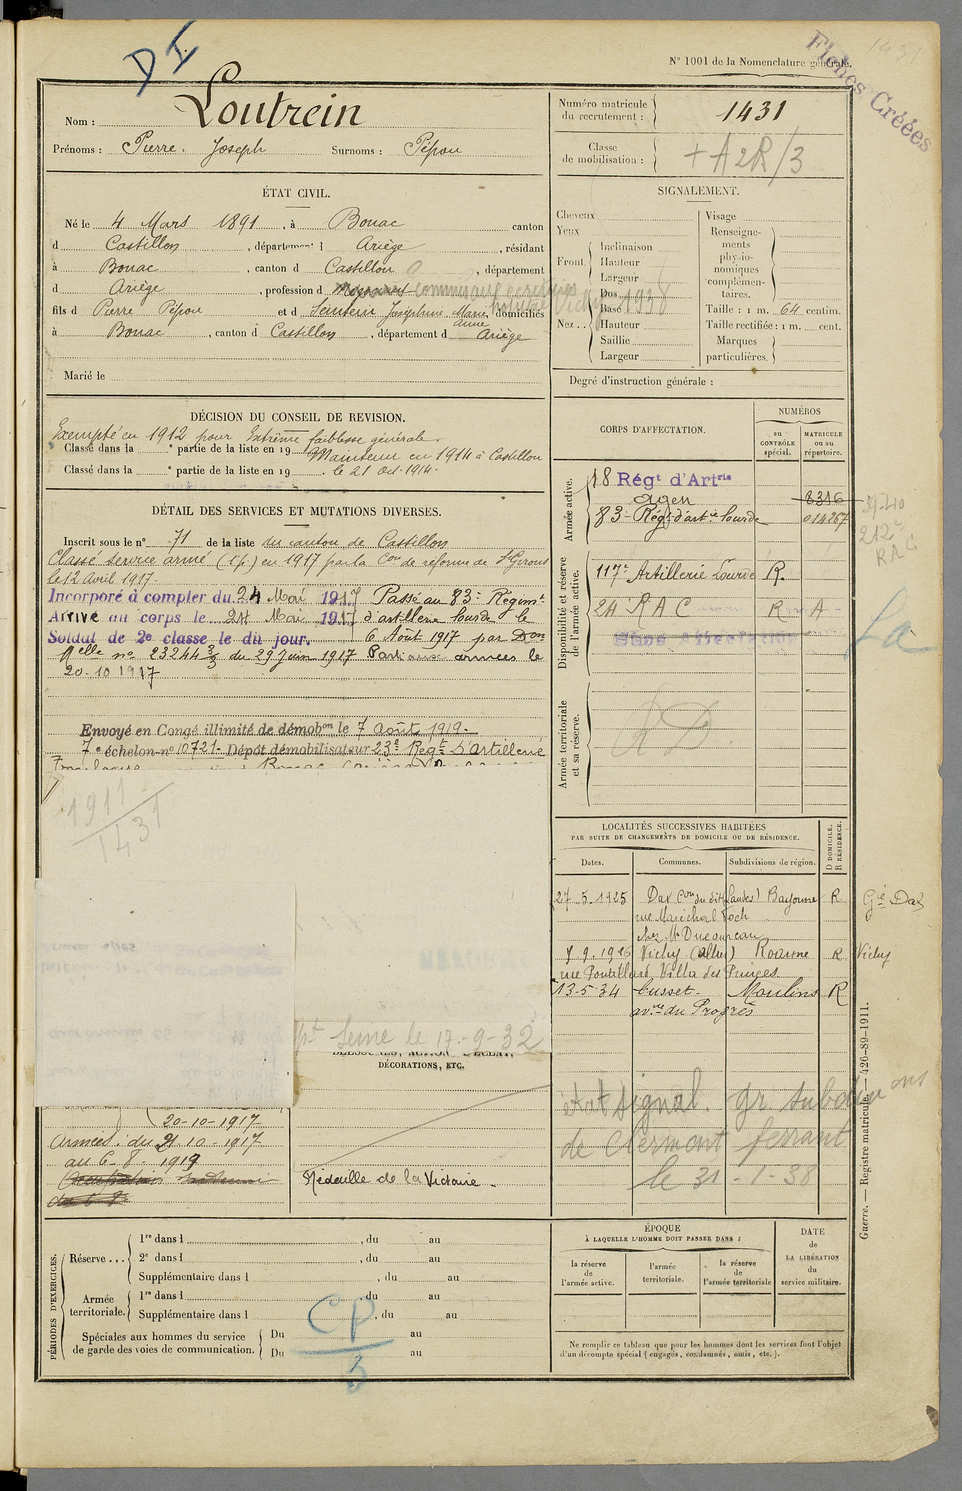 D I
1431
Fiches Créées
N° 1001 de la Nomenclature générale.
Nom : Loutrein
Prénoms : Pierre. Joseph Surnoms : Pépou
Numéro matricule du recrutement : 1431
Classe de mobilisation : + A 2R/3
ÉTAT CIVIL.
Né le 4 Mars 1891, à Bonac canton
d Castillon, département d Ariège, résidant
à Bonac, canton d Castillon, département
d Ariège, profession d
fils d Pierre Pépou et d Senteru Joséphine Marie Anne, domiciliés
à Bonac, canton d Castillon, département d Ariège
Marié le
SIGNALEMENT.
Cheveux
Yeux
Front. Inclinaison
Hauteur
Largeur
Nez . . Dos
Base
Hauteur
Saillie
Largeur
Vichy 1938
Visage
Renseignements physionomiques complémentaires.
Taille : 1 m. 64 centim.
Taille rectifiée : 1 m. cent.
Marques particulières.
Degré d'instruction générale :
DÉCISION DU CONSEIL DE REVISION.
Exempté en 1912 pour Extrême faiblesse générale.
Classé dans la e partie de la liste en 19 Maintenu en 1914 à Castillon
Classé dans la e partie de la liste en 19 le 21 oct. 1914.
DÉTAIL DES SERVICES ET MUTATIONS DIVERSES.
Inscrit sous le n° 71 de la liste du canton de Castillon
Classé service armé (1p.) en 1917 par la Con de réforme de St Girons
le 12 avril 1917.
Incorporé à compter du 24 Mai 1917 Passé au 83e Régimt
Arrivé au corps le 24 Mai 1917 d'artillerie lourde le
Soldat de 2e classe le dit jour. 6 Août 1917 par Don
Melle n° 23244 3/3 du 29 Juin 1917 Parti aux armées le
20-10 1917
Envoyé en Congé illimité de démobon le 7 Août 1919.
7e échelon n° 10721. Dépôt démobilisateur 23e Régt d'artillerie
1911
1431
pt Seine le 17-9-32
BLESSURES, ACTION D'ÉCLAT,
DÉCORATIONS, ETC.
20-10-1917
Armées : du 21 10-1917
au 6-8-1919
Médaille de la Victoire.
CORPS D'AFFECTATION.
NUMÉROS
au CONTRÔLE spécial.
MATRICULE ou au répertoire.
Armée active.
18 Régt d'Artrie
Agen 8316
83e Régt d'artie lourde 014267
212e
RAC
Disponibilité et réserve de l'armée active.
117e Artillerie Lourde R.
24 RAC R A
Sans Affectation
La
Armée territoriale et sa réserve.
RD.
LOCALITÉS SUCCESSIVES HABITÉES
PAR SUITE DE CHANGEMENTS DE DOMICILE OU DE RÉSIDENCE.
Dates. Communes. Subdivisions de région. D DOMICILE. R RÉSIDENCE.
27-5-1925 Dax Con du dit (Landes) Bayonne R Gie Dax
rue Maréchal Foch
chez Mr
7.9.1926 Vichy (Allier) Roanne R Vichy
13-5-34 Cusset. Moulins R
av.ue du Progrès
état signal. gr. subdivisions
de Clermont ferrant
le 31-1-38
Guerre. — Registre matricule. — 426-89-1911.
PÉRIODES D'EXERCICES.
Réserve . . . 1re dans l , du au
2e dans l , du au
Supplémentaire dans l , du au
Armée territoriale. 1re dans l , du au
Supplémentaire dans l , du au
Spéciales aux hommes du service Du au
de garde des voies de communication. Du au
CP
3
ÉPOQUE
À LAQUELLE L'HOMME DOIT PASSER DANS :
la réserve de l'armée active.
l'armée territoriale.
la réserve de l'armée territoriale
DATE
de
LA LIBÉRATION
du
service militaire.
Ne remplir ce tableau que pour les hommes dont les services font l'objet
d'un décompte spécial (engagés, condamnés, omis, etc.).